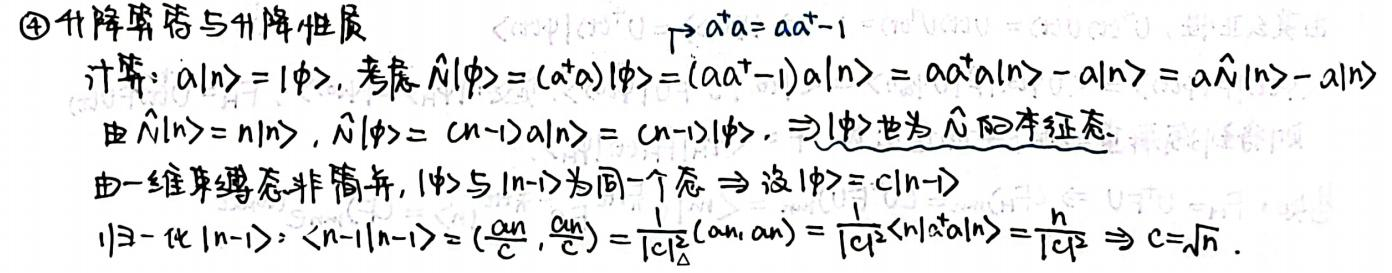 ④升降算符与升降性质
↱ a⁺a = aa⁺-1
计算: a|n> = |φ>, 考虑 N̂|φ> = (a⁺a)|φ> = (aa⁺-1)a|n> = aa⁺a|n> - a|n> = aN̂|n> - a|n>
由 N̂|n> = n|n>, N̂|φ> = (n-1)a|n> = (n-1)|φ>. ⇒ |φ>也为 N̂ 的本征态.
由一维束缚态非简并, |φ>与|n-1>为同一个态 ⇒ 设|φ> = c|n-1>
归一化|n-1>: <n-1|n-1> = (an/c, an/c) = 1/|c|² (an, an) = 1/|c|² <n|a⁺a|n> = n/|c|² ⇒ c=√n.